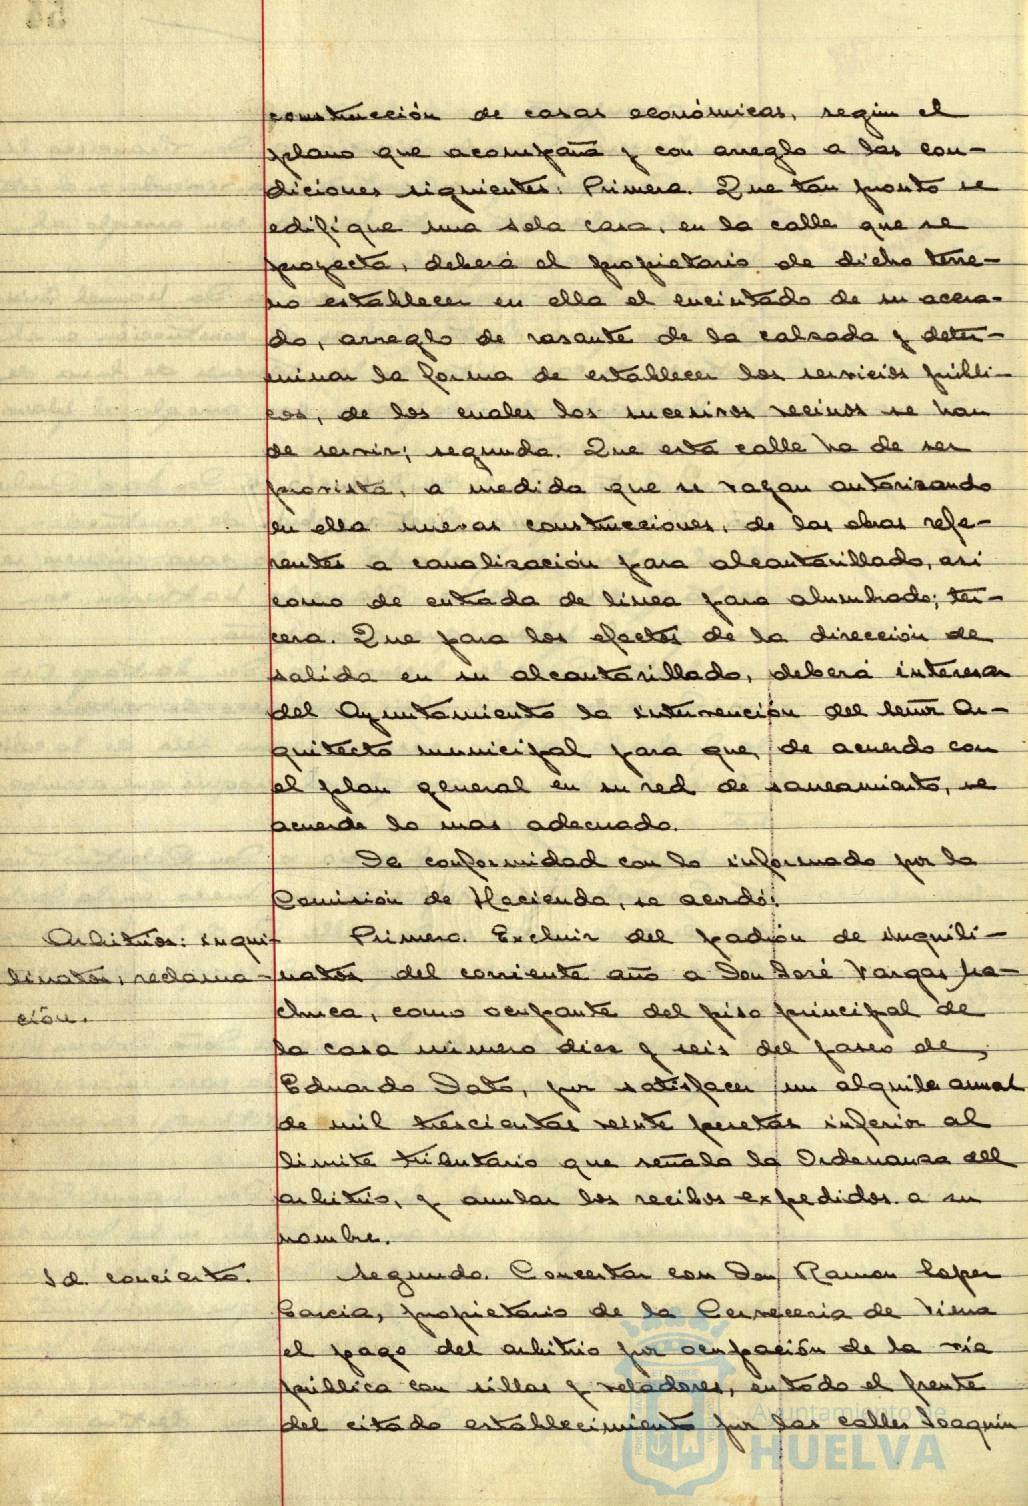 construcción de casas económicas, según el
plano que acompaña y con arreglo a las con-
diciones siguientes: Primera. Que tan pronto se
edifique una sola casa, en la calle que se
proyecta, deberá el propietario de dicho terre-
no establecer en ella el encintado de su acera-
do, arreglo de rasante de la calzada y deter-
minar la forma de establecer los servicios públi-
cos, de los cuales los sucesivos vecinos se han
de servir; segunda. Que esta calle ha de ser
provista, a medida que se vayan autorizando
en ella nuevas construcciones, de las obras refe-
rentes a canalización para alcantarillado, asi
como de entrada de línea para alumbrado; ter-
cera. Que para los efectos de la dirección de
salida en su alcantarillado, deberá interesar
del Ayuntamiento la intervención del señor Ar-
quitecto municipal para que, de acuerdo con
el plan general en su red de saneamiento, se
acuerde lo mas adecuado.
De conformidad con lo informado por la
Comisión de Hacienda, se acordó:
Arbitrios: inqui-
linatos, reclama-
ción.
Primero. Excluir del padrón de inquili-
natos del corriente año a Don José Vargas Pa-
chuca, como ocupante del piso principal de
la casa número diez y seis del paseo de
Eduardo Dato, por satisfacer un alquiler anual
de mil trescientas veinte pesetas inferior al
límite tributario que señala la Ordenanza del
arbitrio, y anular los recibos expedidos a su
nombre.
Id. concierto.
Segundo. Concertar con Don Ramon Lopez
Garcia, propietario de la Cerveceria de Viena
el pago del arbitrio por ocupación de la vía
pública con sillas y veladores, en todo el frente
del citado establecimiento por las calles Joaquin
Ayuntamiento de
HUELVA